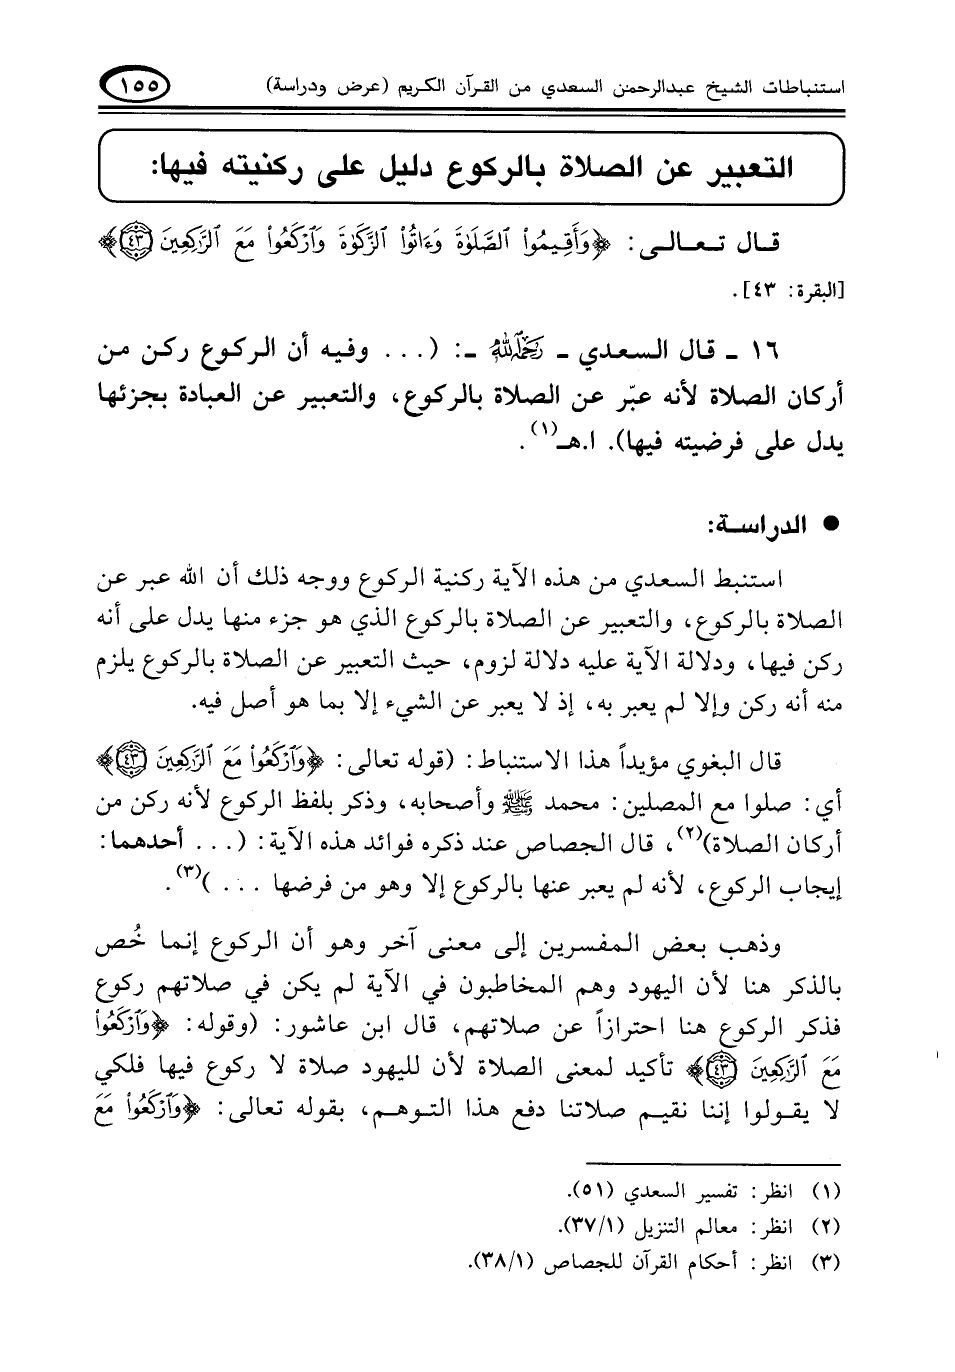 استنباطات الشيخ عبدالرحمن السعدي من القرآن الكريم (عرض ودراسة)
١٥٥
التعبير عن الصلاة بالركوع دليل على ركنيته فيها:
قال تعالى: ﴿وَأَقِيمُوا۟ ٱلصَّلَوٰةَ وَءَاتُوا۟ ٱلزَّكَوٰةَ وَٱرْكَعُوا۟ مَعَ ٱلرَّٰكِعِينَ ٤٣﴾
[البقرة: ٤٣].
١٦ ـ قال السعدي ـ رَحِمَهُ ٱللَّهُ ـ: (... وفيه أن الركوع ركن من
أركان الصلاة لأنه عبّر عن الصلاة بالركوع، والتعبير عن العبادة بجزئها
يدل على فرضيته فيها). ا.هـ(١).
● الدراسة:
استنبط السعدي من هذه الآية ركنية الركوع ووجه ذلك أن الله عبر عن
الصلاة بالركوع، والتعبير عن الصلاة بالركوع الذي هو جزء منها يدل على أنه
ركن فيها، ودلالة الآية عليه دلالة لزوم، حيث التعبير عن الصلاة بالركوع يلزم
منه أنه ركن وإلا لم يعبر به، إذ لا يعبر عن الشيء إلا بما هو أصل فيه.
قال البغوي مؤيداً هذا الاستنباط: (قوله تعالى: ﴿وَٱرْكَعُوا۟ مَعَ ٱلرَّٰكِعِينَ ٤٣﴾
أي: صلوا مع المصلين: محمد ﷺ وأصحابه، وذكر بلفظ الركوع لأنه ركن من
أركان الصلاة)(٢)، قال الجصاص عند ذكره فوائد هذه الآية: (... أحدهما:
إيجاب الركوع، لأنه لم يعبر عنها بالركوع إلا وهو من فرضها ...)(٣).
وذهب بعض المفسرين إلى معنى آخر وهو أن الركوع إنما خُص
بالذكر هنا لأن اليهود وهم المخاطبون في الآية لم يكن في صلاتهم ركوع
فذكر الركوع هنا احترازاً عن صلاتهم، قال ابن عاشور: (وقوله: ﴿وَٱرْكَعُوا۟
مَعَ ٱلرَّٰكِعِينَ ٤٣﴾ تأكيد لمعنى الصلاة لأن لليهود صلاة لا ركوع فيها فلكي
لا يقولوا إننا نقيم صلاتنا دفع هذا التوهم، بقوله تعالى: ﴿وَٱرْكَعُوا۟ مَعَ
(١) انظر: تفسير السعدي (٥١).
(٢) انظر: معالم التنزيل (٣٧/١).
(٣) انظر: أحكام القرآن للجصاص (٣٨/١).